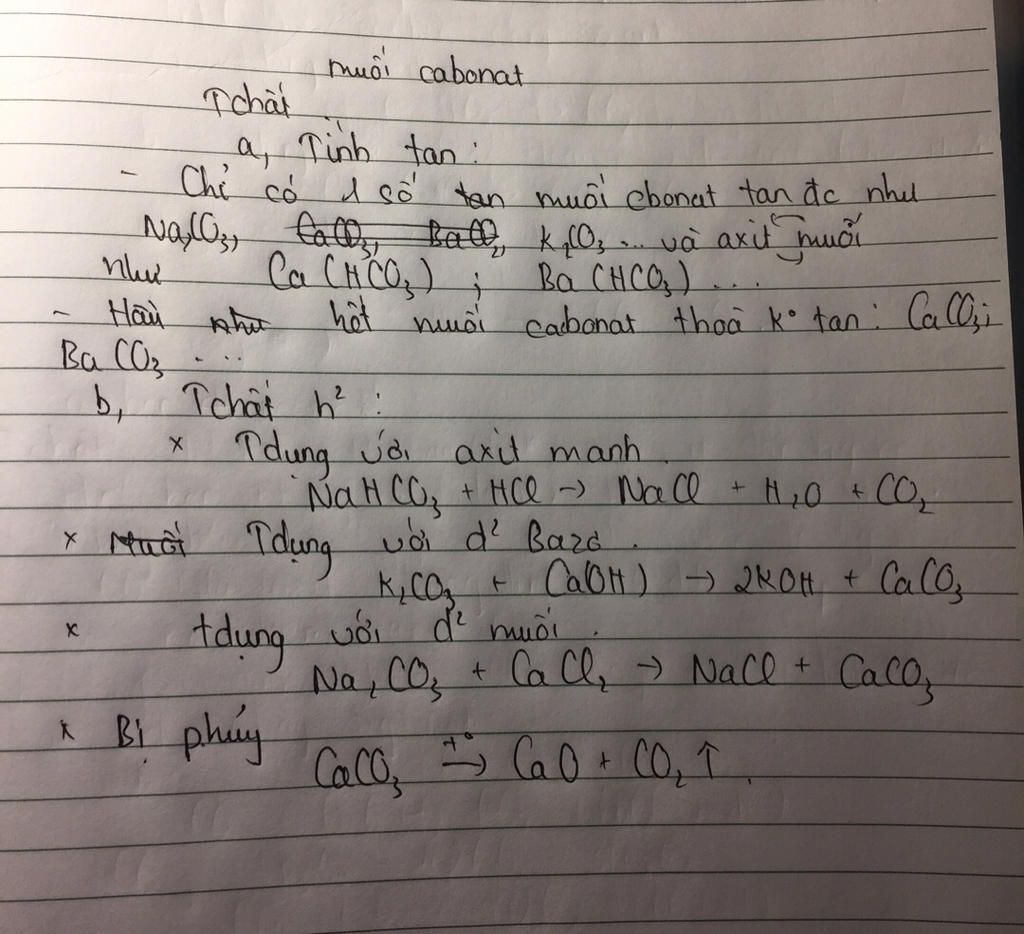 muối cabonat
Tchất
a, Tính tan:
- Chỉ có 1 số tan muối cbonat tan đc như
Na2CO3, CaCO3, BaCO3, K2CO3 ... và axit muối
như Ca(HCO3) ; Ba(HCO3) ...
- Hầu như hết muối cabonat thoả k° tan: CaCO3;
BaCO3 ...
b, Tchất h² :
x Tdụng với axit mạnh.
NaHCO3 + HCl → NaCl + H2O + CO2
x Muối Tdụng với d² Bazơ.
K2CO3 + Ca(OH) → 2KOH + CaCO3
x tdụng với d² muối.
Na2CO3 + CaCl2 → NaCl + CaCO3
x Bị phủy
CaCO3 t° → CaO + CO2 ↑.